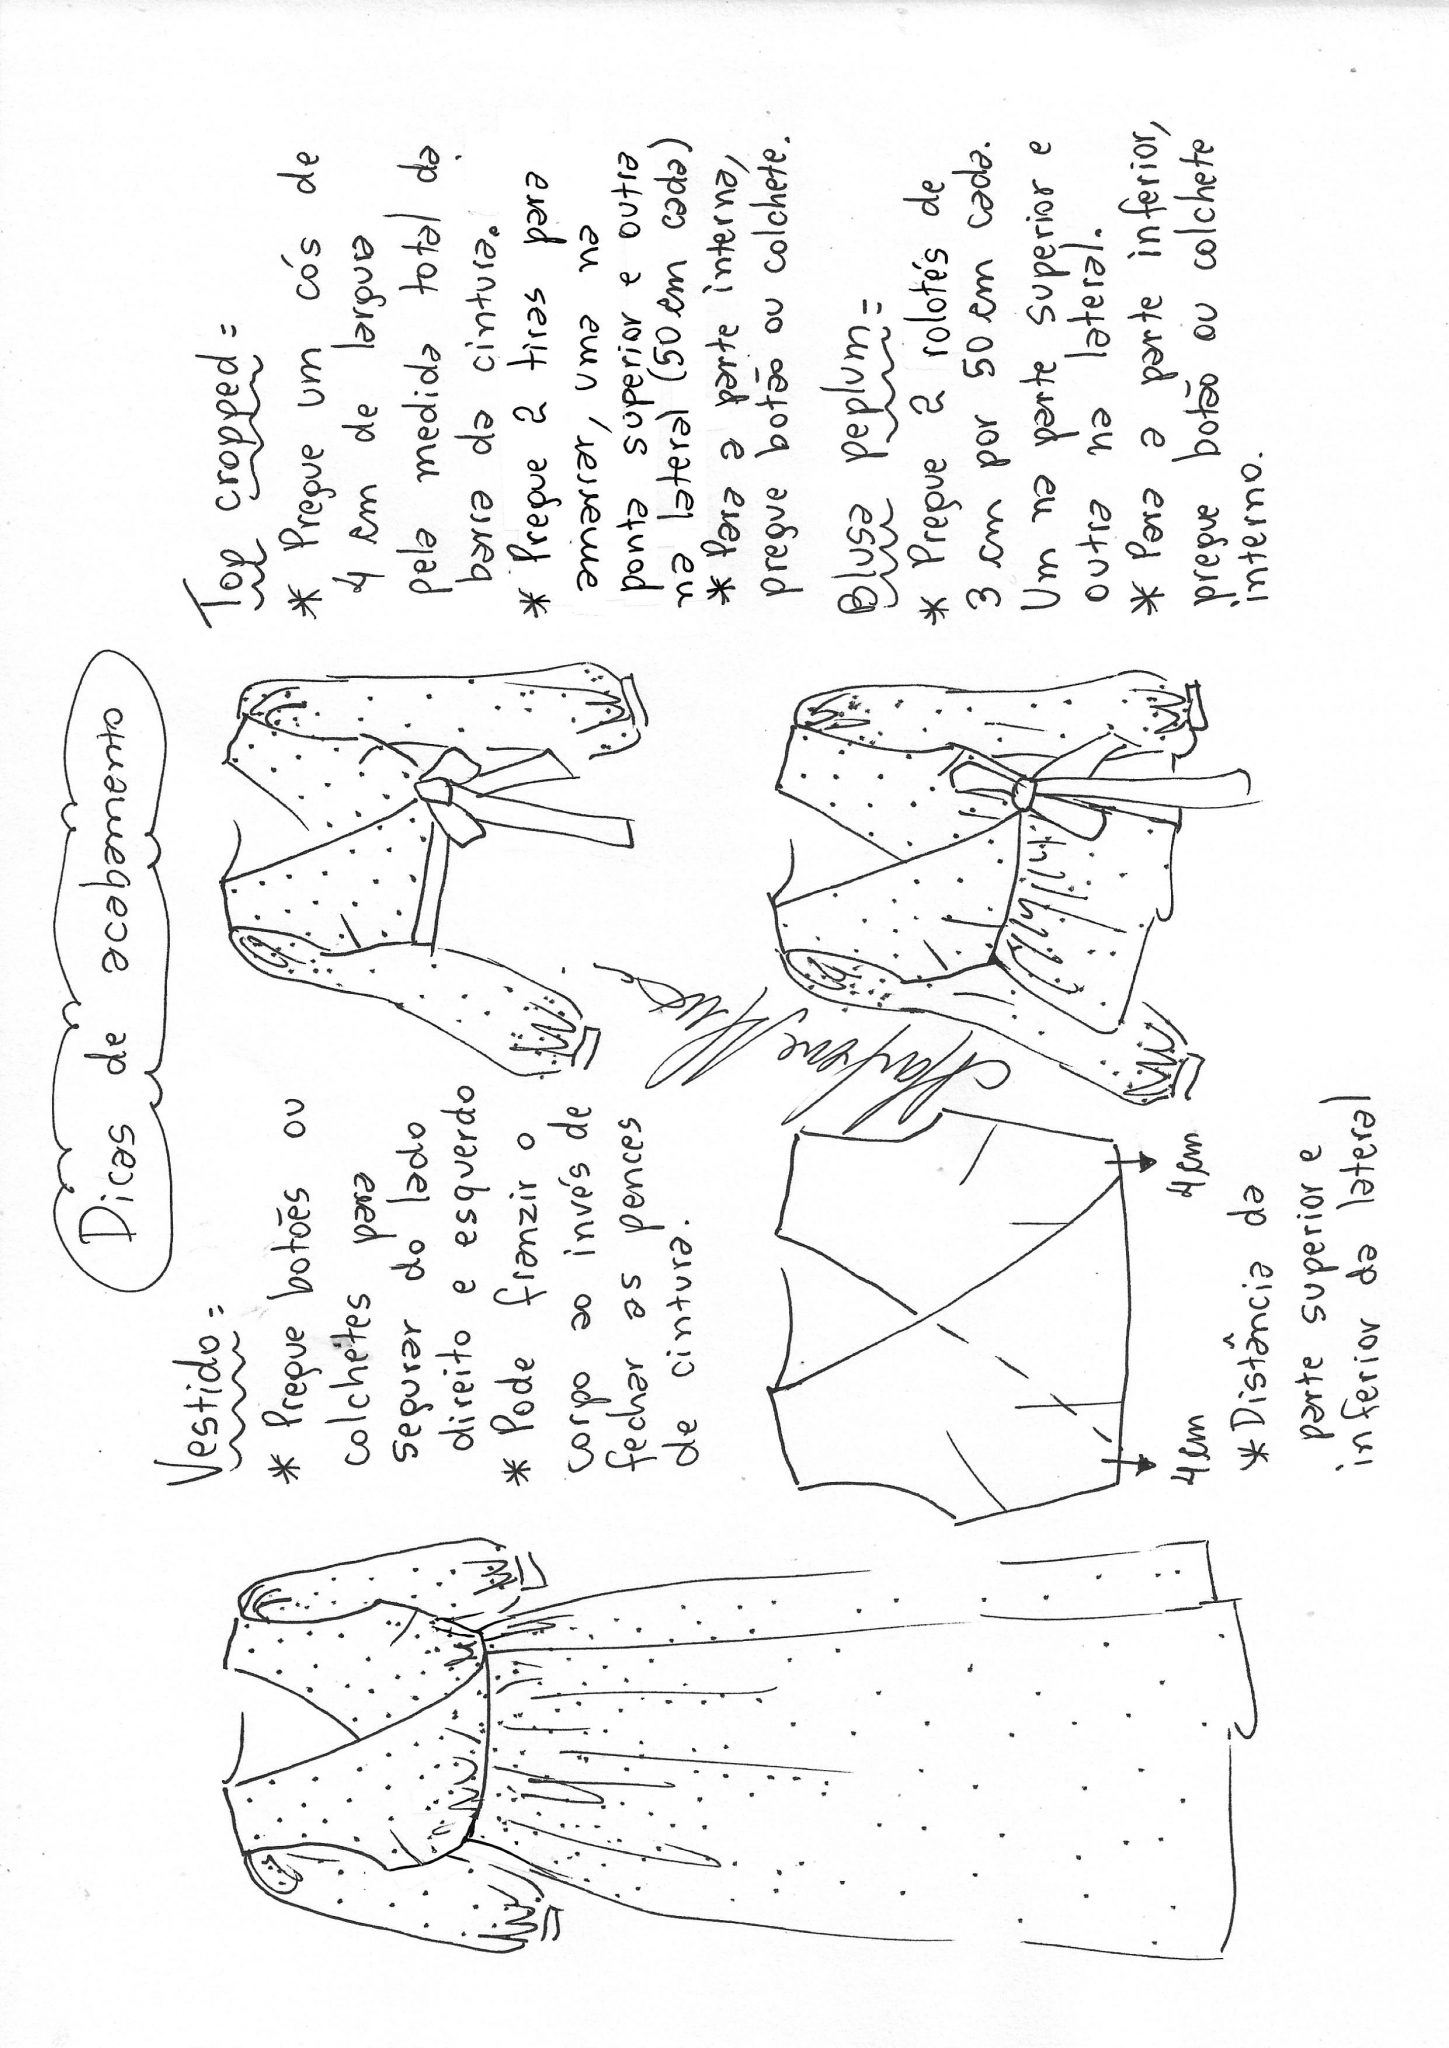 Dicas de acabamento
Vestido =
* Pregue botões ou
colchetes para
segurar do lado
direito e esquerdo
* Pode franzir o
corpo ao invés de
fechar as pences
de cintura.
4cm
4cm
* Distância da
parte superior e
inferior da lateral
Marlene Mukai
Top cropped =
* Pregue um cós de
4 cm de largura
pela medida total da
barra da cintura.
* Pregue 2 tiras para
amarrar, uma na
ponta superior e outra
na lateral (50 cm cada)
* Para a parte interna,
pregue botão ou colchete.
Blusa peplum =
* Pregue 2 rolotés de
3 cm por 50 cm cada.
Um na parte superior e
outra na lateral.
* Para a parte inferior,
pregue botão ou colchete
interno.